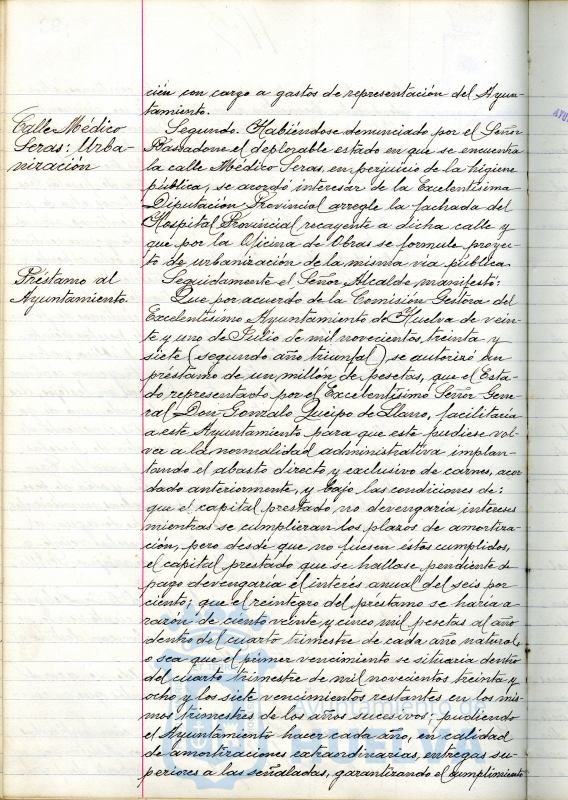 ción con cargo a gastos de representación del Ayun-
tamiento.
Calle Médico
Seras: Urba-
nización
Segundo. Habiéndose denunciado por el Señor
el deplorable estado en que se encuentra
la calle Médico Seras, en perjuicio de la higiene
pública, se acordó interesar de la Excelentísima
Diputación Provincial arregle la fachada del
Hospital Provincial recayente a dicha calle y
que por la Oficina de Obras se formule proyec-
to de urbanización de la misma vía pública.
Préstamo al
Ayuntamiento.
Seguidamente el Señor Alcalde manifestó:
Que por acuerdo de la Comisión Gestora del
Excelentísimo Ayuntamiento de Huelva de vein-
te y uno de Julio de mil novecientos treinta y
siete (segundo año triunfal) se autorizó un
préstamo de un millón de pesetas, que el Esta-
do representado por el Excelentísimo Señor Gene-
ral Don Gonzalo Queipo de Llano, facilitaría
a este Ayuntamiento para que este pudiese vol-
ver a la normalidad administrativa implan-
tando el abasto directo y exclusivo de carnes, acor
dado anteriormente, y bajo las condiciones de:
que el capital prestado no devengaría intereses
mientras se cumplieran los plazos de amortiza-
ción, pero desde que no fuesen éstos cumplidos,
el capital prestado que se hallase pendiente de
pago devengaría el interés anual del seis por
ciento; que el reintegro del préstamo se haría a
razón de ciento veinte y cinco mil pesetas al año
dentro del cuarto trimestre de cada año natural,
o sea que el primer vencimiento se situaría dentro
del cuarto trimestre de mil novecientos treinta y
ocho y los siete vencimientos restantes en los mis-
mos trimestres de los años sucesivos; pudiendo
el Ayuntamiento hacer cada año, en calidad
de amortizaciones extraordinarias, entregas su-
periores a las señaladas, garantizando el cumplimiento
Ayuntamiento de
HUELVA